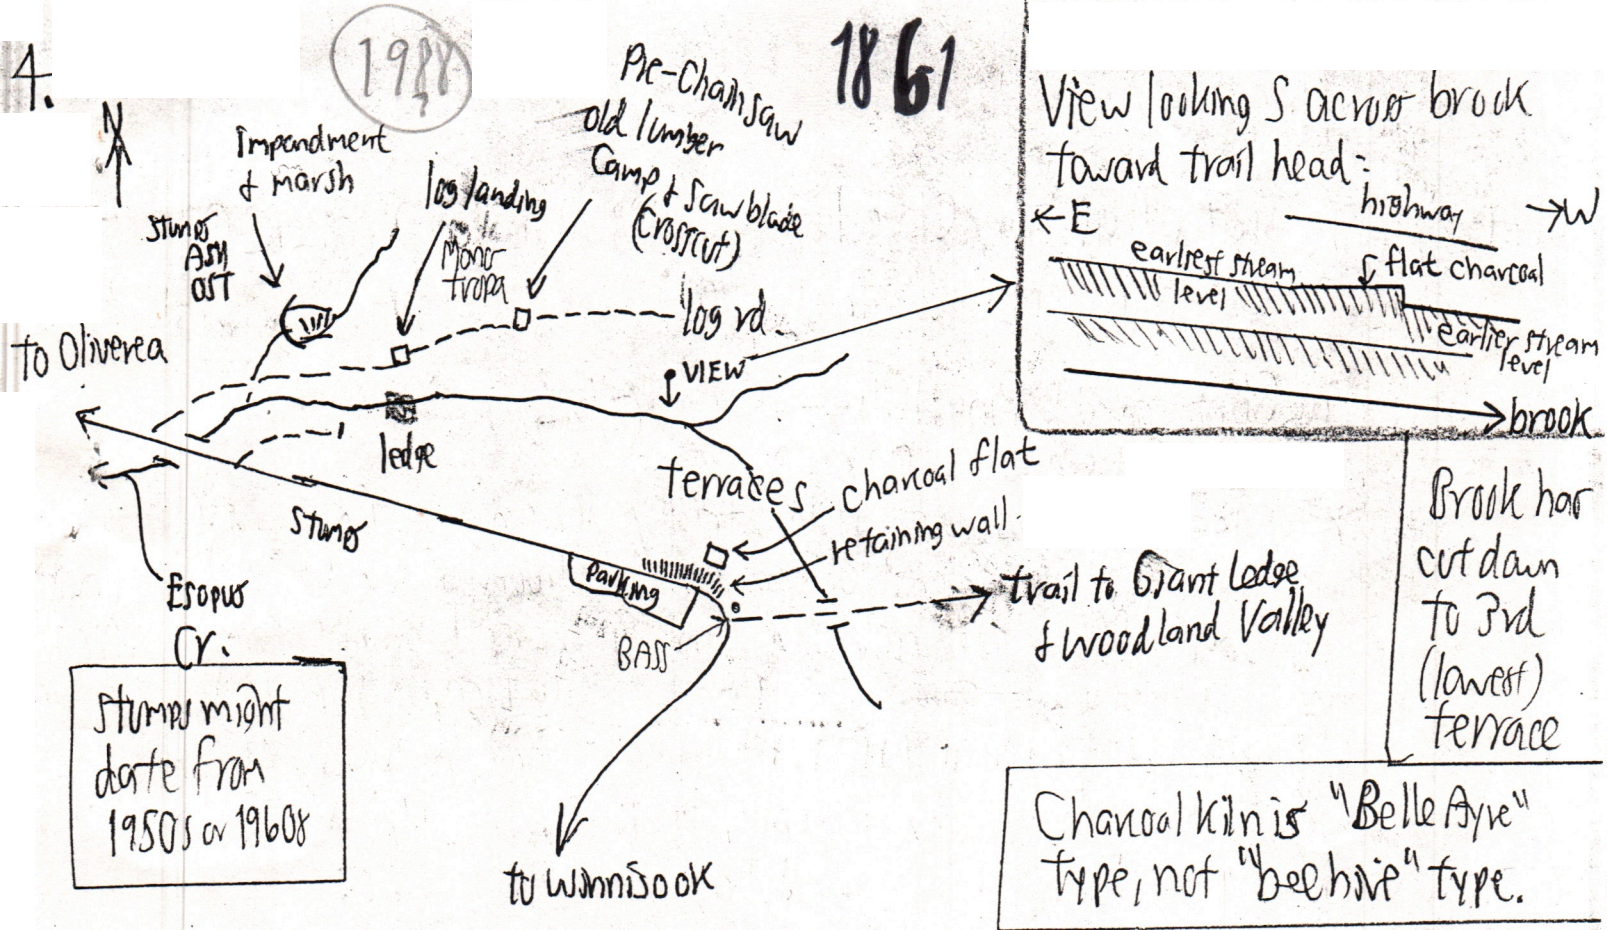 4.
1988
?
1861
N
Impondment
& marsh
Stumps
ASH
OST
log landing
Mono-
tropa
Pre-Chainsaw
old lumber
Camp & Sawblade
(Crosscut)
log rd.
to Oliverea
VIEW
ledge
terraces
charcoal flat
retaining wall
Stumps
Parking
BASS
Esopus
Cr.
trail to Giant Ledge
& Woodland Valley
to Winnisook
Stumps might
date from
1950s or 1960s
View looking S across brook
toward trail head:
← E
highway
→ W
earliest stream
level
flat charcoal
earlier stream
level
brook
Brook has
cut down
to 3rd
(lowest)
terrace
Charcoal Kiln is "Belle Ayre"
type, not "beehive" type.